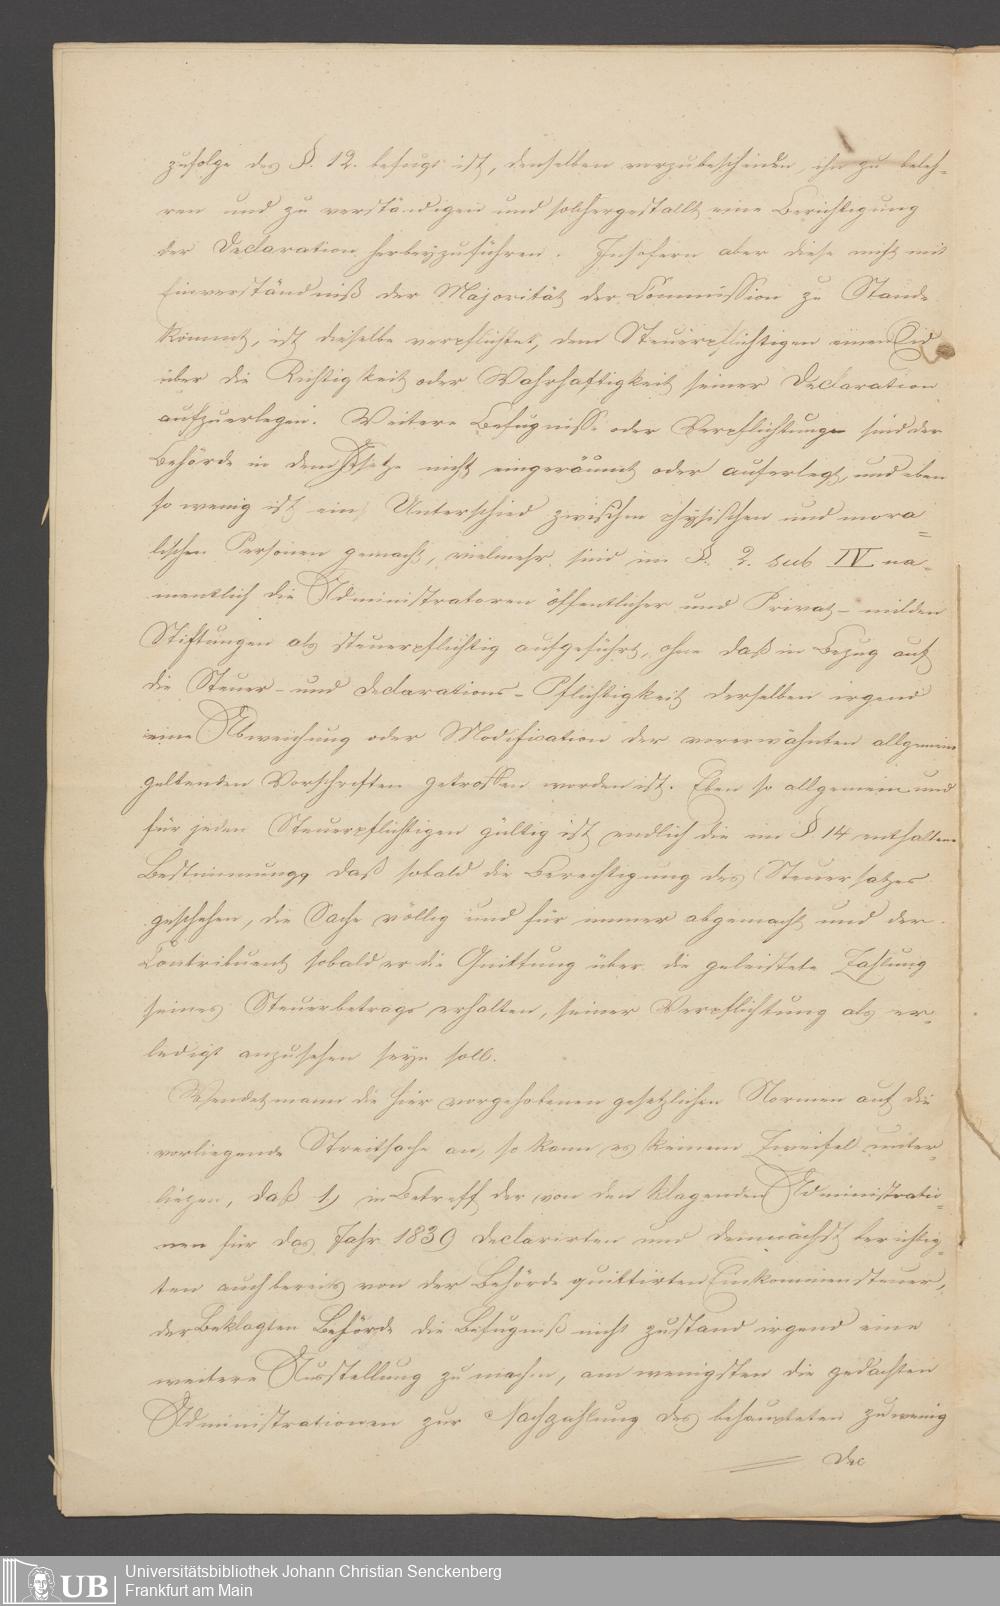 zufolge des §. 12. befugt ist, denselben vorzubescheiden, ihn zu beleh-
ren und zu verständigen und solchergestallt eine Berichtigung
der Declaration herbeyzuführen. Insofern aber diese nicht mit
Einverständniß der Majorität der Commission zu Stande
kommt, ist dieselbe verpflichtet, dem Steuerpflichtigen einen Eid
über die Richtigkeit oder Wahrhaftigkeit seiner Declaration
aufzuerlegen. Weitere Befugnisse oder Verpflichtungen sind der
Behörde in dem Gesetze nicht eingeräumt oder auferlegt, und eben
so wenig ist ein Unterschied zwischen physischen und mora-
lischen Personen gemacht, vielmehr sind im §. 2. sub IV na-
mentlich die Administratoren öffentlicher und Privat- milden
Stiftungen als steuerpflichtig aufgeführt, ohne daß in Bezug auf
die Steuer- und Declarations-Pflichtigkeit derselben irgend
eine Abweichung oder Modification der vorerwähnten allgemein
geltenden Vorschriften getroffen worden ist. Eben so allgemein und
für jeden Steuerpflichtigen gültig ist endlich die im § 14 enthaltene
Bestimmung, daß sobald die Berechtigung des Steuersatzes
geschehen, die Sache völlig und für immer abgemacht und der
Contribuent sobald er die Quittung über die geleistete Zahlung
seines Steuerbetrags erhalten, seiner Verpflichtung als er-
ledigt anzusehen seyn soll.
Wendet man die hier vorgehobenen gesetzlichen Normen auf die
vorliegende Streitsache an, so kann es keinem Zweifel unter-
liegen, daß 1.) in Betreff der von den klagenden Administratio-
nen für das Jahr 1839 declarirten und demnächst berichtig-
ten auch bereits von der Behörde quittirten Einkommensteuer,
der Beklagten Behörde die Befugniß nicht zustand irgend eine
weitere Ausstellung zu machen, am wenigsten die gedachten
Administrationen zur Nachzahlung des behaupteten zu wenig
dec
Universitätsbibliothek Johann Christian Senckenberg
Frankfurt am Main
UB